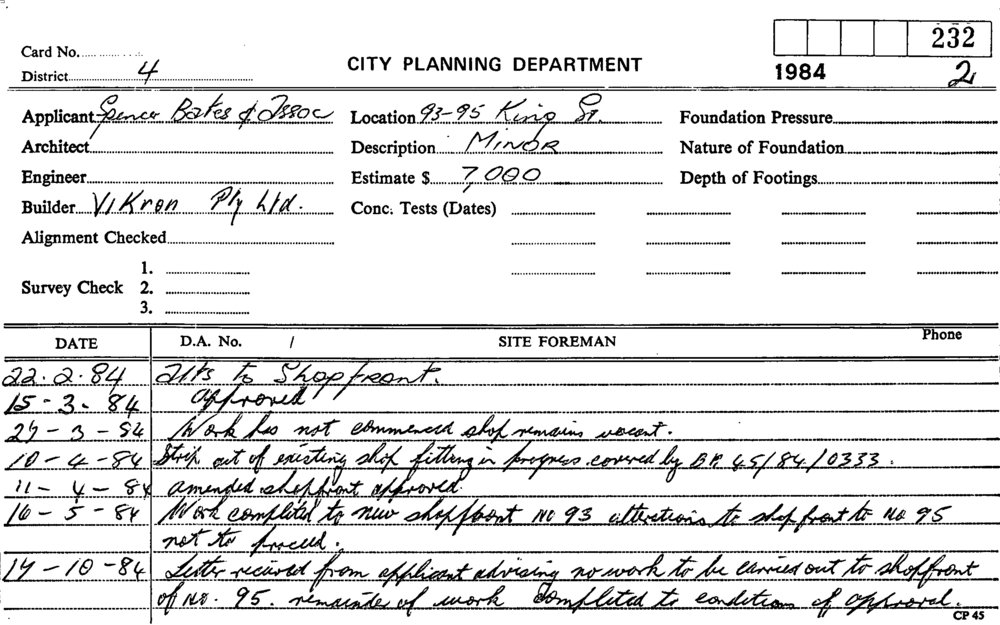 232
Card No.
CITY PLANNING DEPARTMENT
1984 2
District 4
Applicant Spencer Bates & Assoc Location 93-95 King St. Foundation Pressure
Architect Description MINOR Nature of Foundation
Engineer Estimate $ 7,000 Depth of Footings
Builder Vikron Pty Ltd. Conc. Tests (Dates)
Alignment Checked
1.
Survey Check 2.
3.
DATE D.A. No. / SITE FOREMAN Phone
22.2.84 Alts to Shopfront.
15-3-84 Approved
29-3-84 Work has not commenced shop remains vacant.
10-4-84 Strip out of existing shop fitting in progress covered by B.A. 45/84/0333.
11-4-84 amended shopfront approved
16-5-84 Work completed to new shopfront No 93 alterations to shop front to No 95
not to proceed.
17-10-84 Letter received from applicant advising no work to be carried out to shopfront
of No. 95. remainder of work completed to conditions of approval.
CP 45